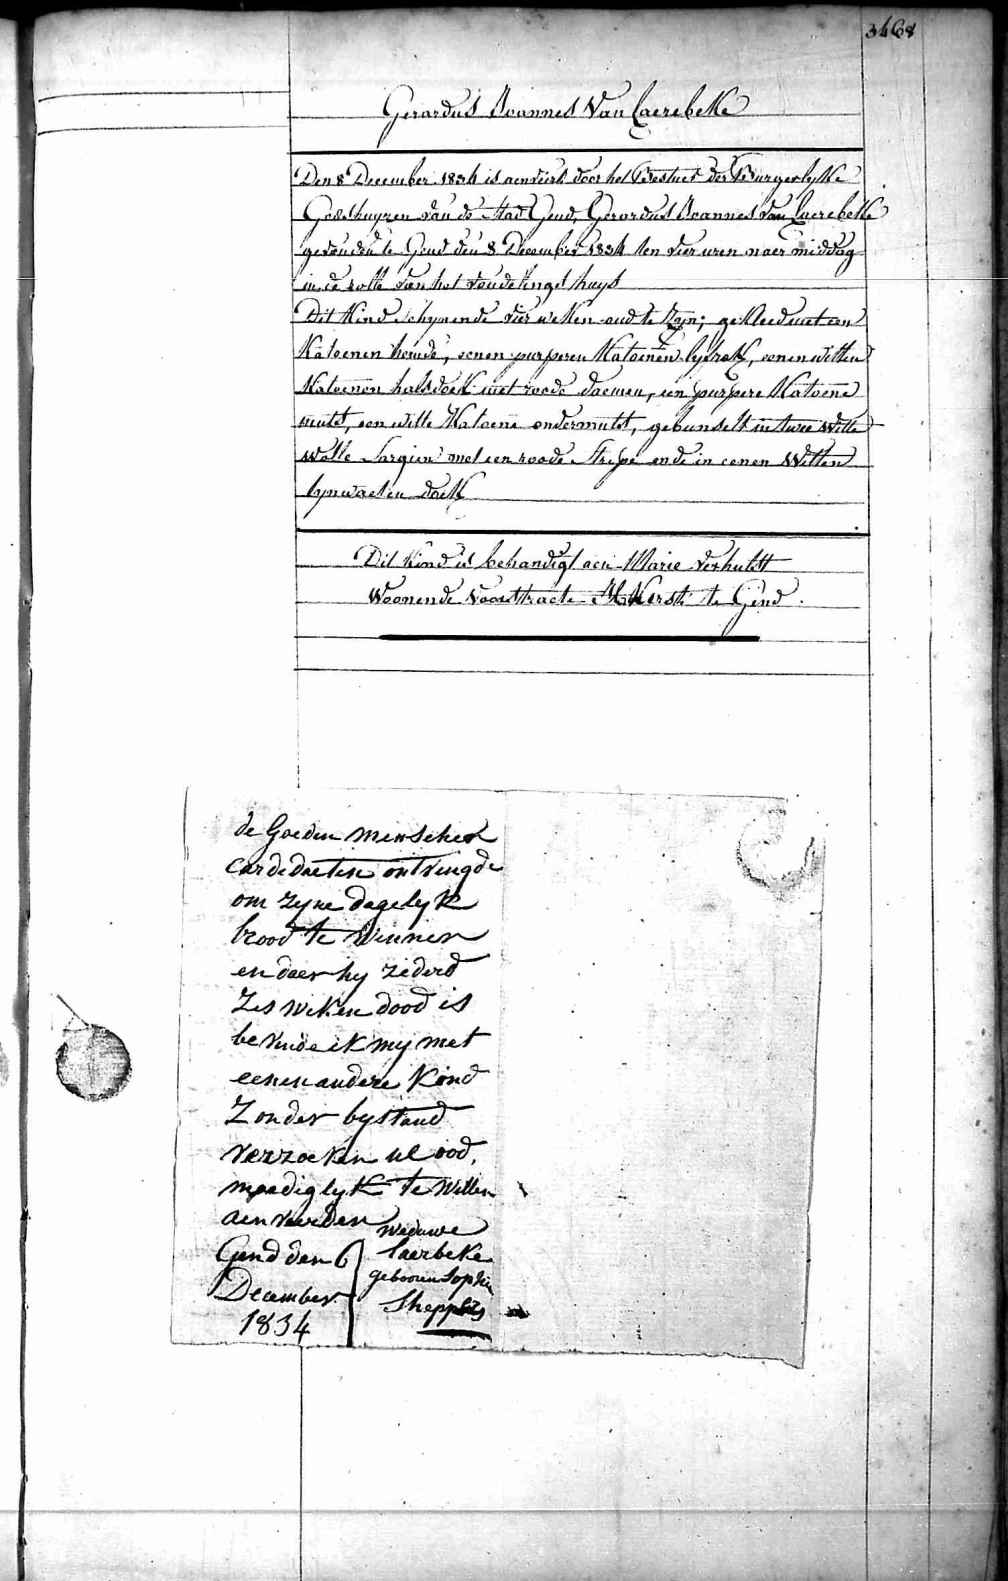 3468
Gerardus Joannes Van Caerebeke
Den 8 December 1834 is aenveirt door het Bestuer der Burgerlyke
Godshuyzen van de Stad Gend, Gerardus Joannes Van Caerebeke
gevonden te Gend den 8 December 1834 ten vier uren naer middag
in de rolle van het vondelings huys
Dit Kind schynende vier weken oud te zyn; gekleed met een
Katoenen hemde, eenen purperen Katoenen lyfrok, eenen witten
Katoenen halsdoek met roode bloemen, een purpere Katoene
muts, een witte Katoene ondermuts, gebunselt in twee witte
wolle Sargien met een roode Stripe ende in eenen Witten
lynwaeten doek
Dit Kind is behandigt aen Marie Verhulst
Woonende Voorstraete te Gend.
de Goeden menschen
om zyne dagelyk
brood te Winnen
en daer hy zederd
Zes weken dood is
bevinde ik my met
eenen andere Kind
Zonder bystand
verzoeken ul ood,
moediglyk te Willen
aenveerden
weduwe
Gend den 6
Caerbeke
gebooren Sophie
December
1834